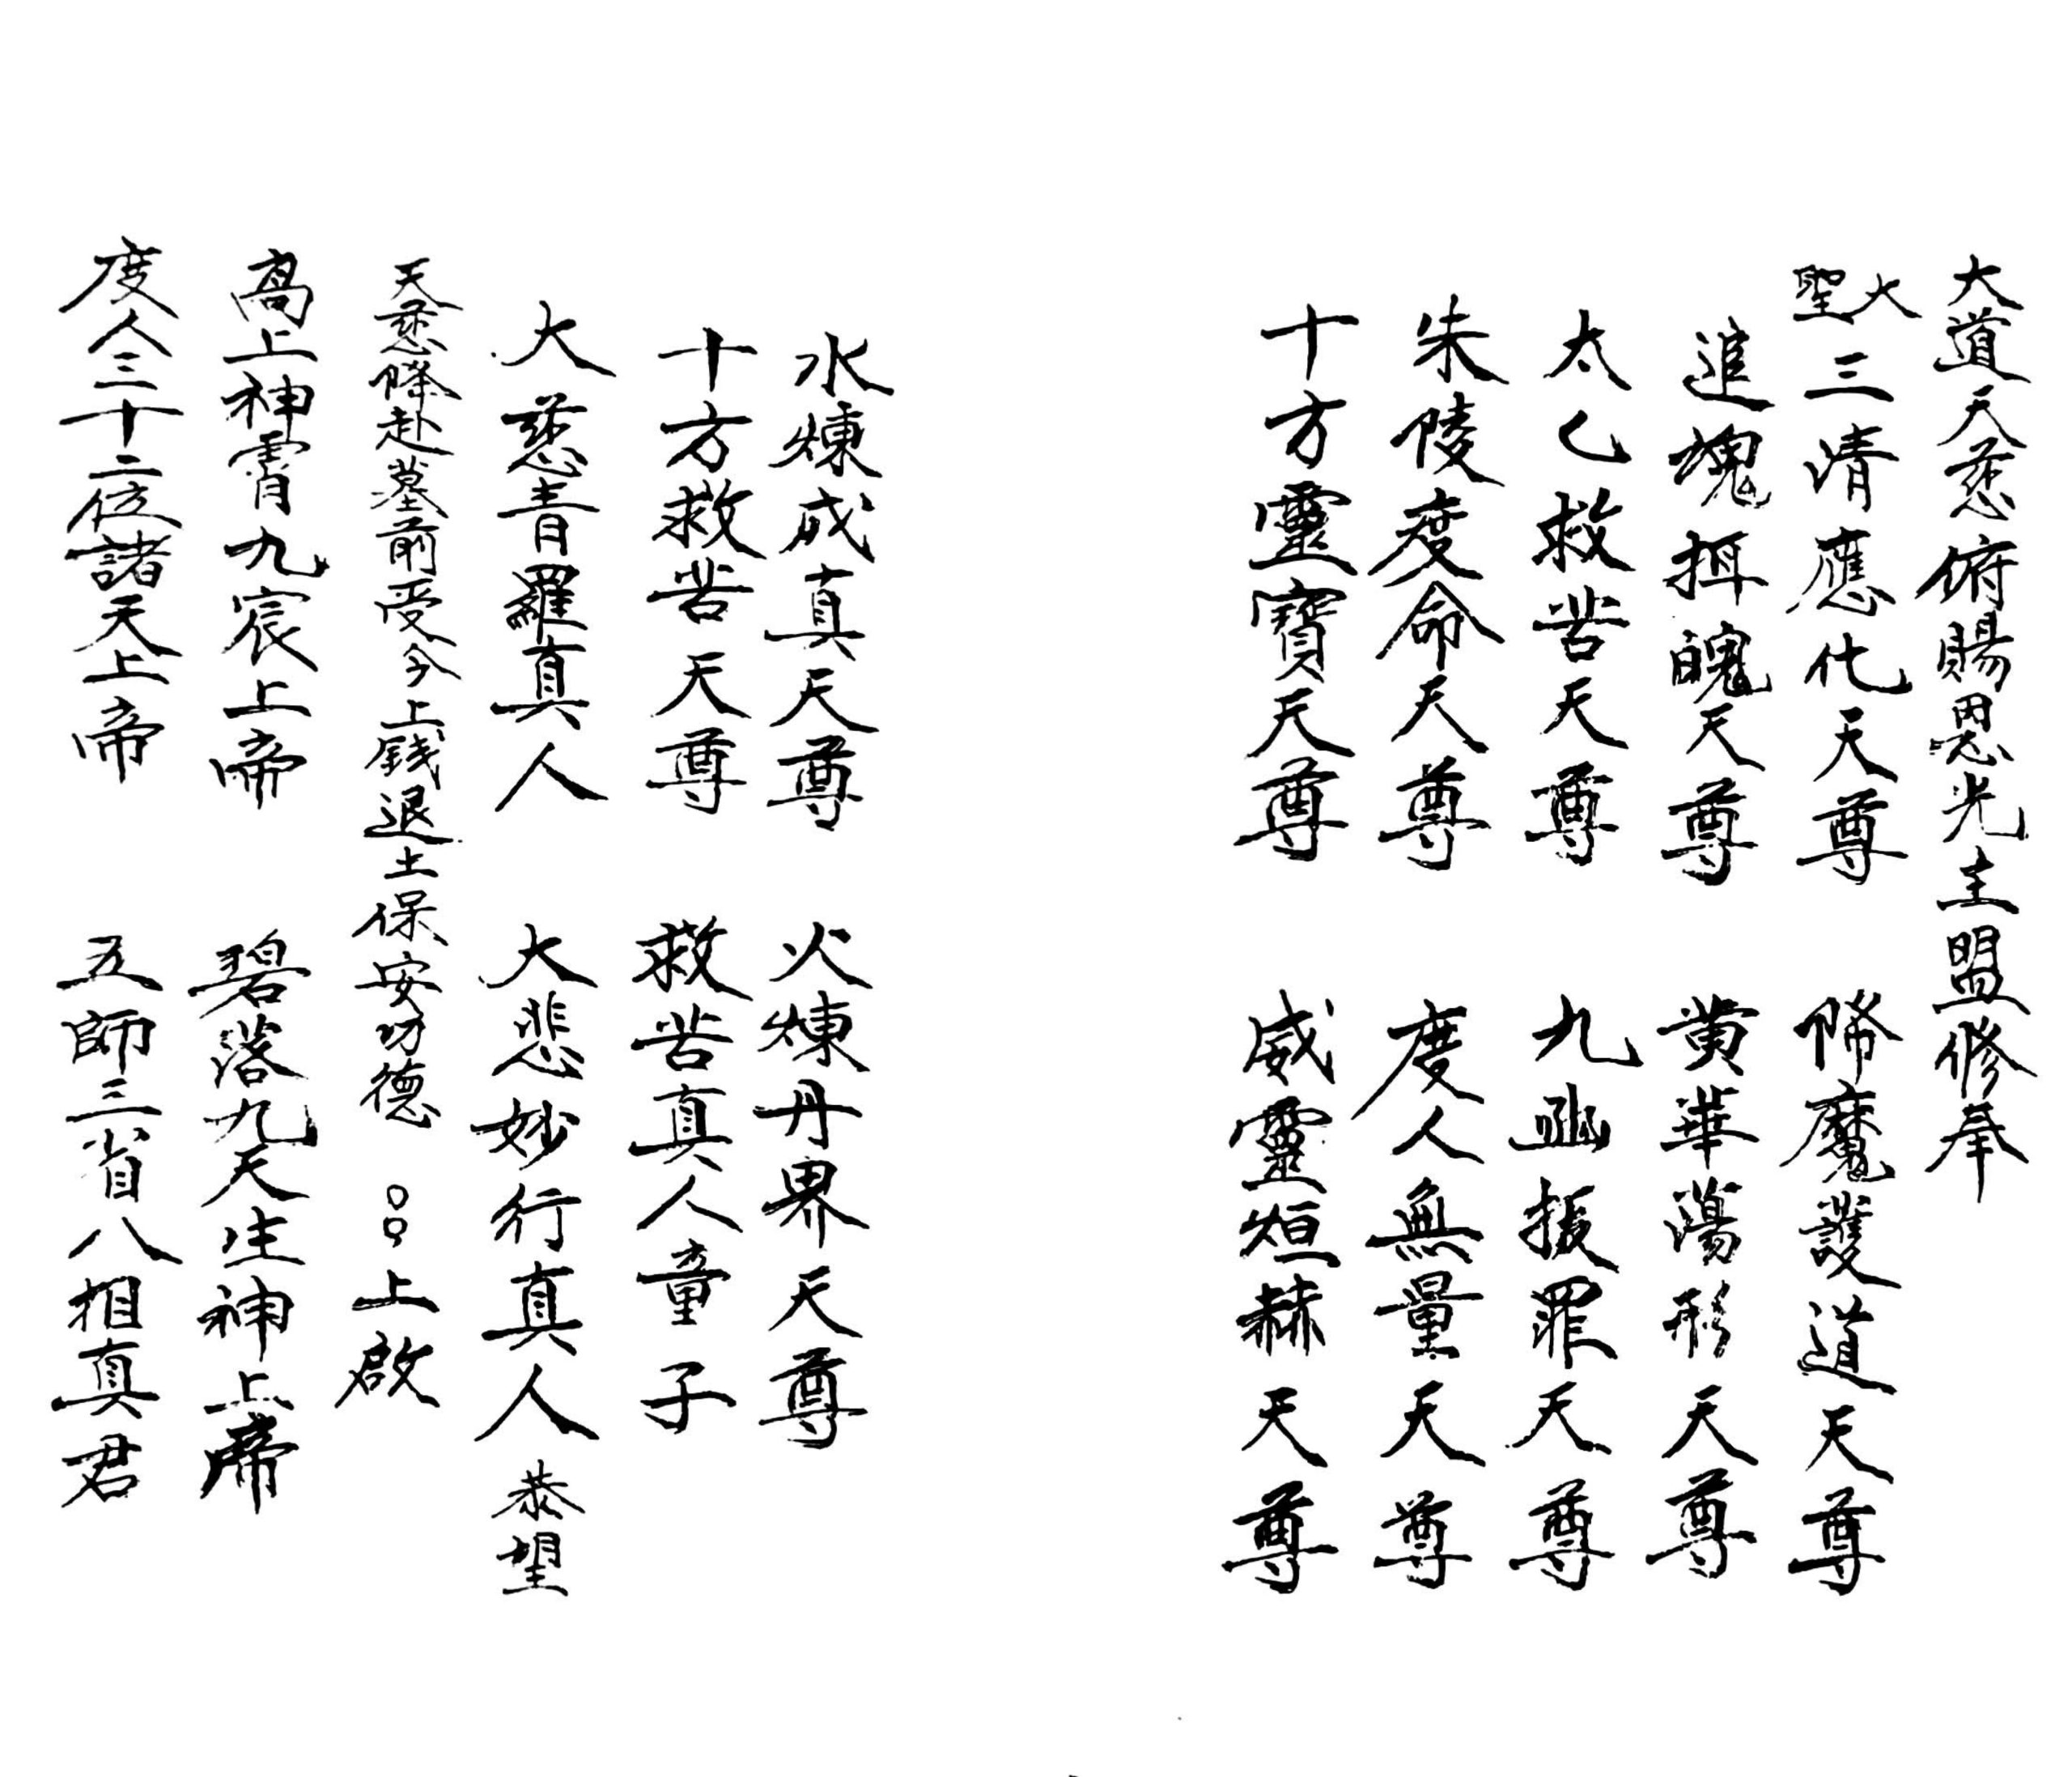 大道天慈俯賜恩光主盟修奉
大聖三清應化天尊 降魔護道天尊
追魂攝魄天尊 黃華蕩形天尊
太乙救苦天尊 九幽拔罪天尊
朱陵度命天尊 度人無量天尊
十方靈寶天尊 威靈烜赫天尊
水煉成真天尊 火煉丹界天尊
十方救苦天尊 救苦真人童子
大慈青羅真人 大悲妙行真人 恭望
天慈降赴墓前受今上錢退土保安功德 〇〇上啟
高上神霄九宸上帝 碧落九天生神上帝
度人三十二位諸天上帝 五師三省八相真君